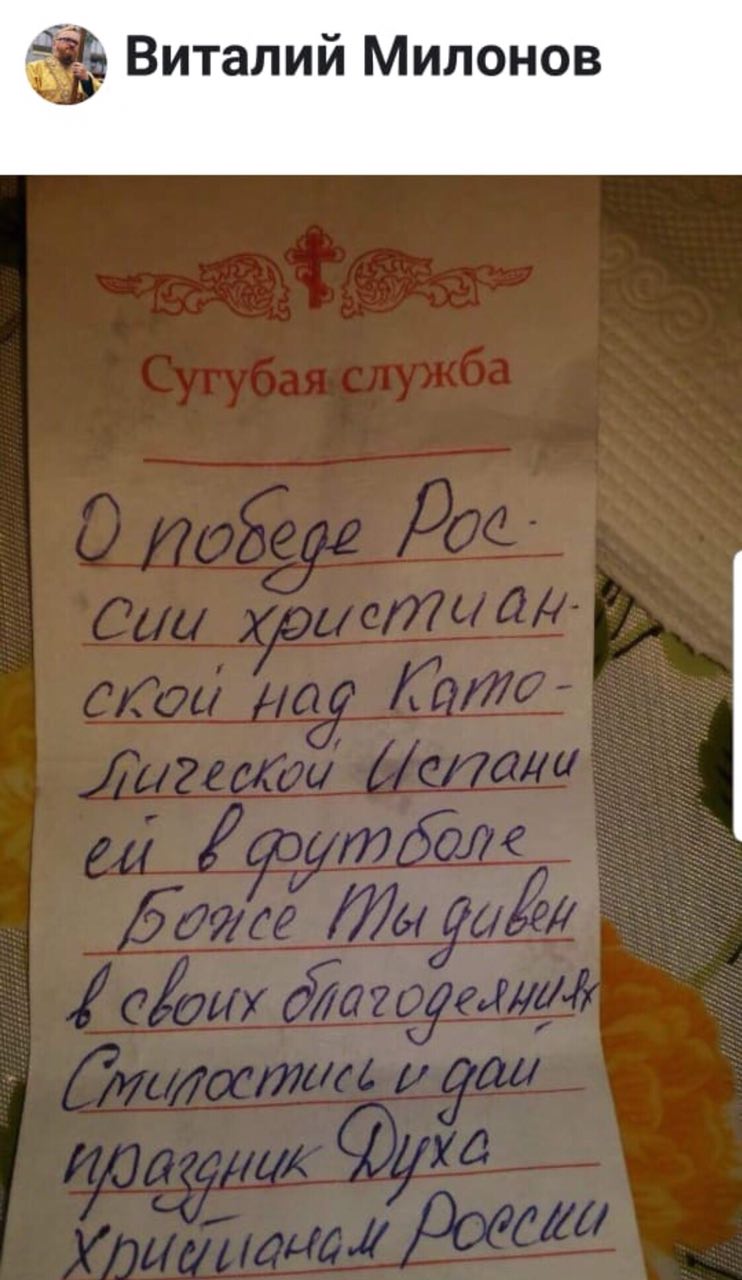 Виталий Милонов
Сугубая служба
О победе Рос-
сии христиан-
ской над Като-
лической Испани
ей в футболе
Боже Ты дивен
в своих благодеяниях
Смилостись и дай
праздник Духа
Христианам России